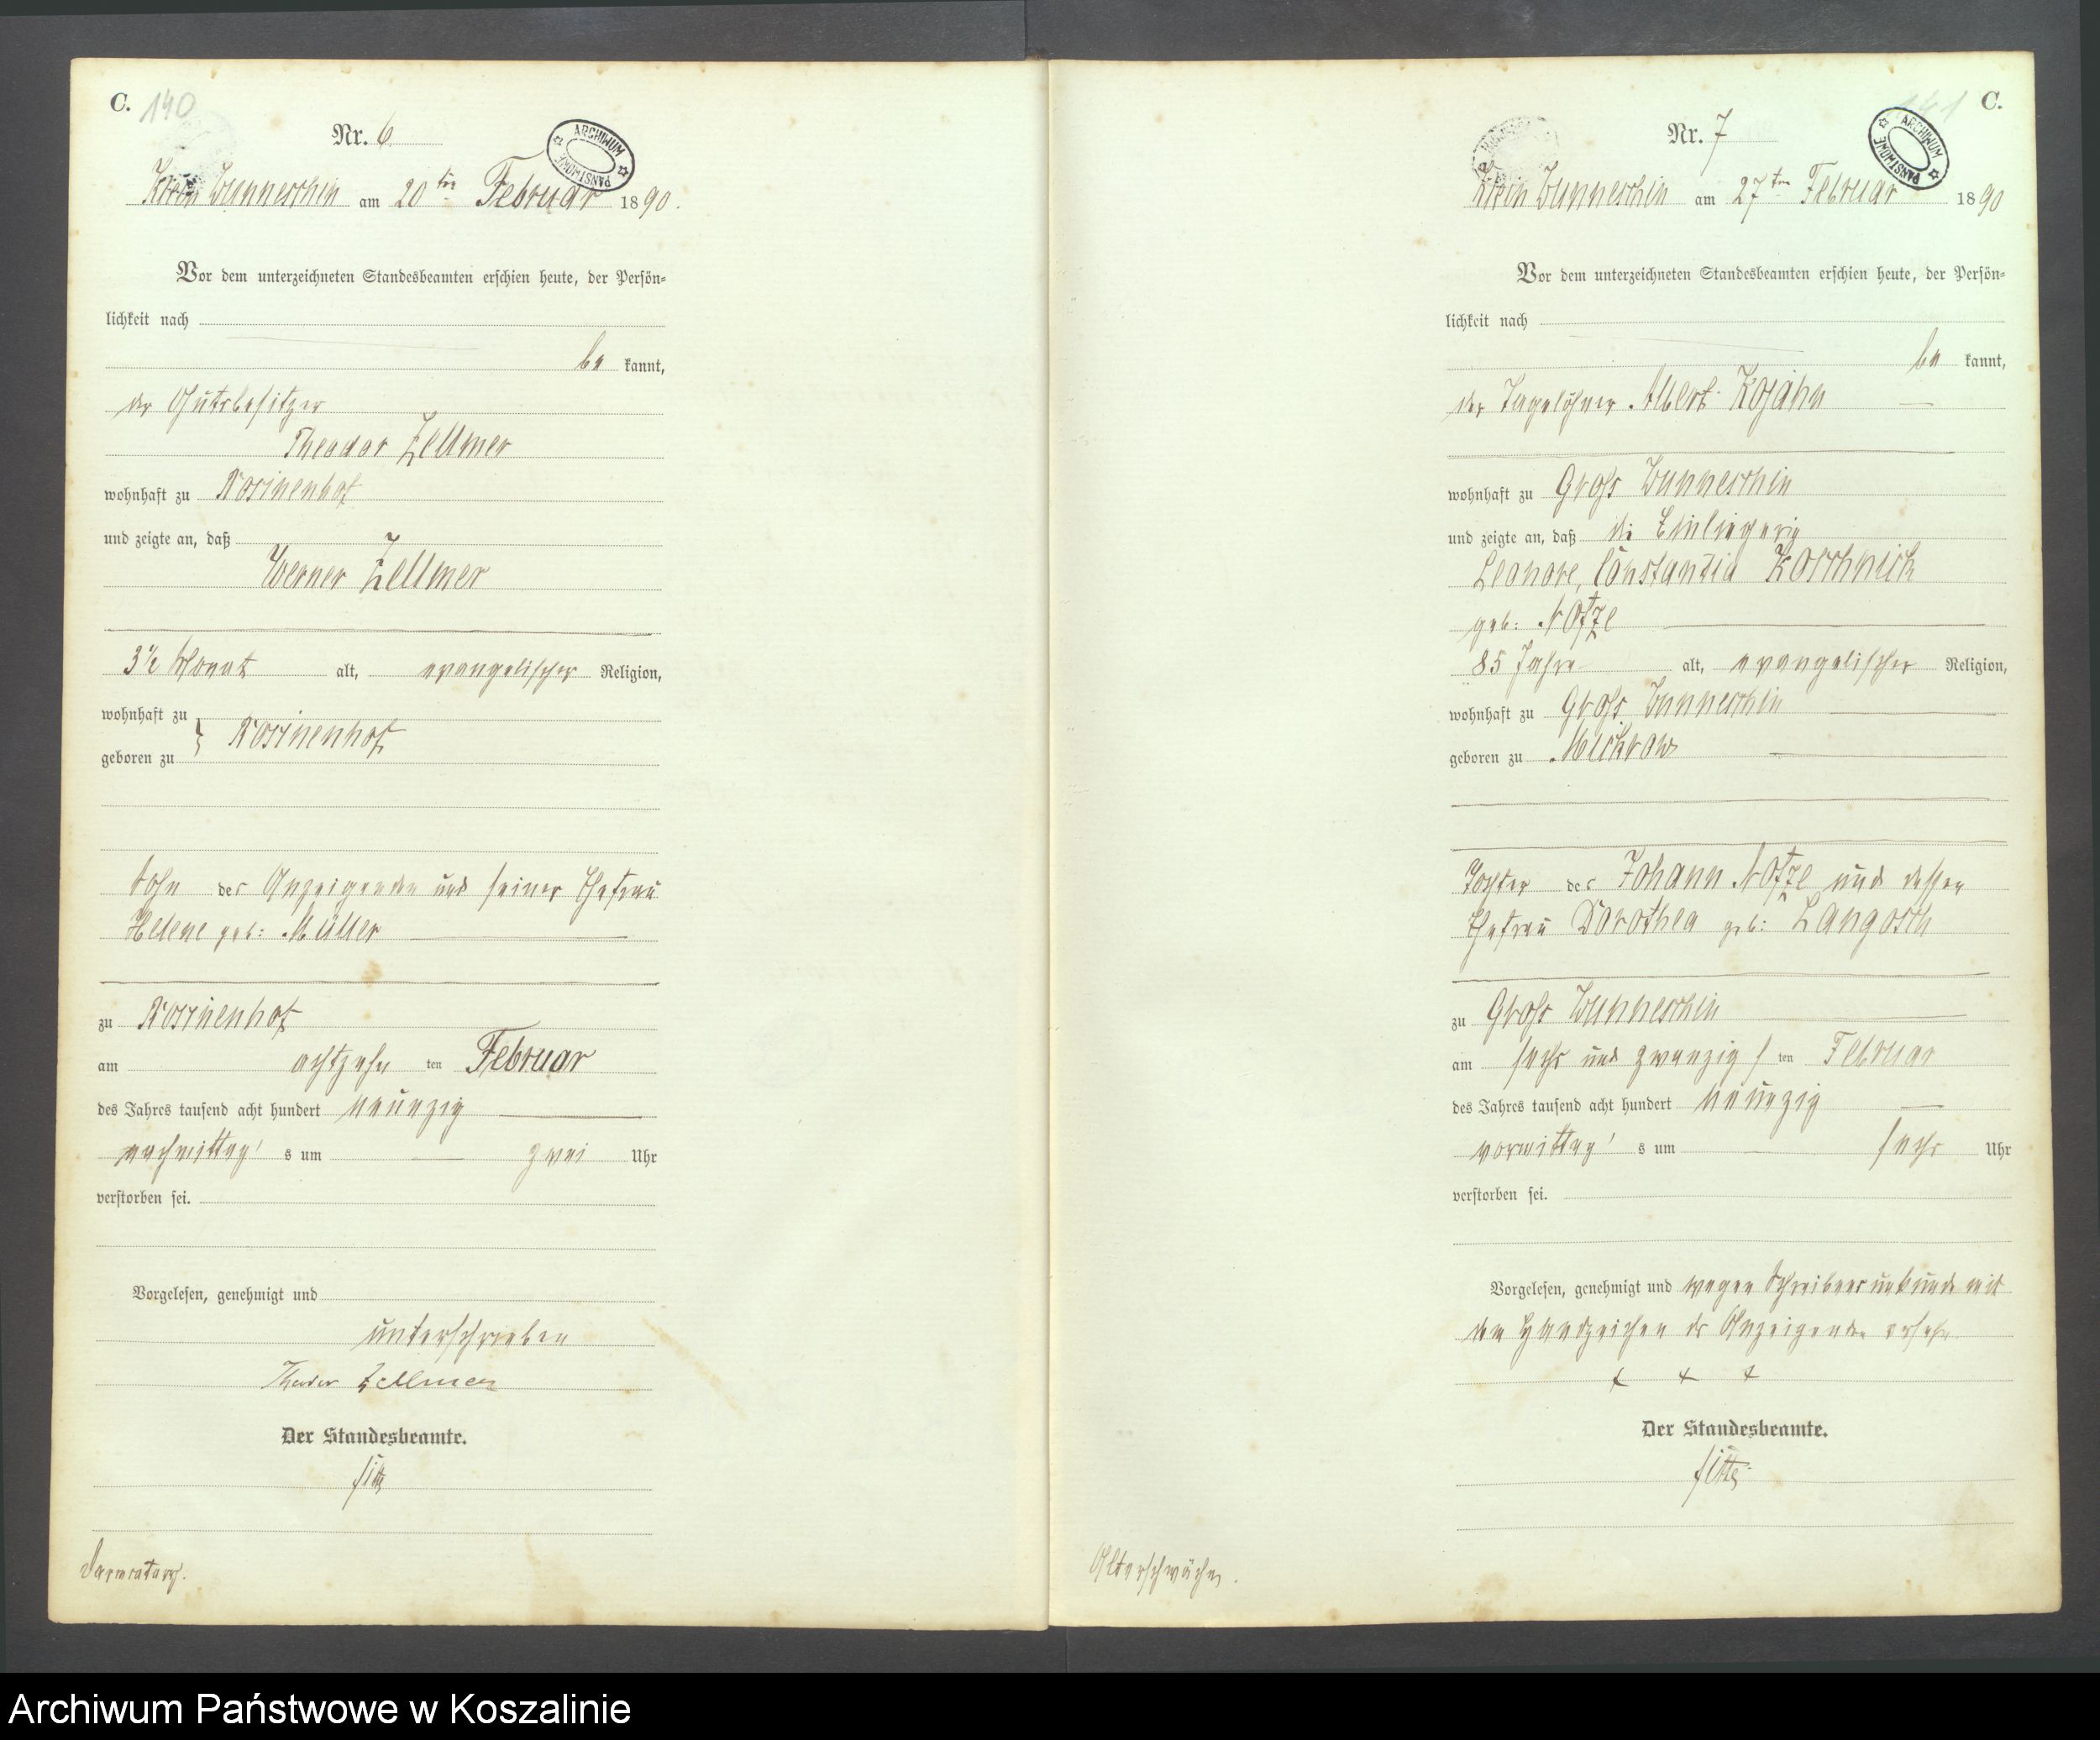 C. 140
Nr. 6.
ARCHIWUM PAŃSTWOWE
Klein Wunneschin am 20ten Februar 1890.
Vor dem unterzeichneten Standesbeamten erschien heute, der Persön-
lichkeit nach
be kannt,
der Gutsbesitzer
Theodor Zellmer
wohnhaft zu Rosinenhof
und zeigte an, daß
Werner Zellmer
3½ Monat alt, evangelischer Religion,
wohnhaft zu
} Rosinenhof
geboren zu
Sohn des Anzeigenden und seiner Ehefrau
Helene geb: Müller
zu Rosinenhof
am achtzehn ten Februar
des Jahres tausend acht hundert neunzig
nachmittag's um zwei Uhr
verstorben sei.
Vorgelesen, genehmigt und
unterschrieben
Theodor Zellmer
Der Standesbeamte.
Darmcatarrh.
C. 141
Nr. 7
ARCHIWUM PAŃSTWOWE
Klein Wunneschin am 27ten Februar 1890
Vor dem unterzeichneten Standesbeamten erschien heute, der Persön-
lichkeit nach
be kannt,
der Tagelöhner Albert Kojahn
wohnhaft zu Groß Wunneschin
und zeigte an, daß die Einliegerin
Leonore, Constantia Koschnick
geb: Notzel
85 Jahre alt, evangelischer Religion,
wohnhaft zu Groß Wunneschin
geboren zu Mickrow
Tochter des Johann Notzel und dessen
Ehefrau Dorothea geb: Langosch
zu Groß Wunneschin
am sechs und zwanzigs ten Februar
des Jahres tausend acht hundert neunzig
vormittag's um sechs Uhr
verstorben sei.
Vorgelesen, genehmigt und wegen Schreibensunkunde mit
dem Handzeichen des Anzeigenden versehn
+ + +
Der Standesbeamte.
Altersschwäche.
Archiwum Państwowe w Koszalinie